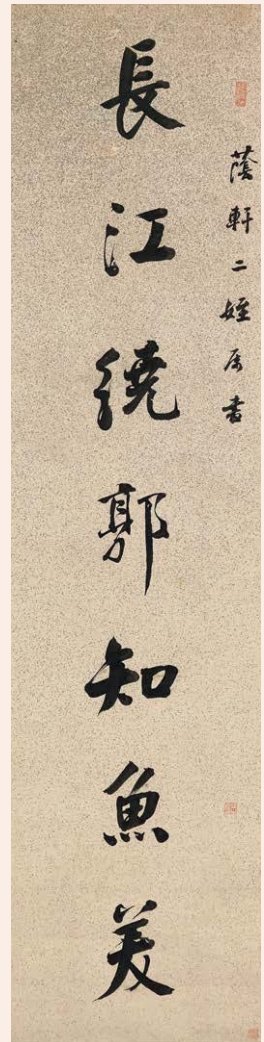 蔭軒二姪屬書
長江繞郭知魚美